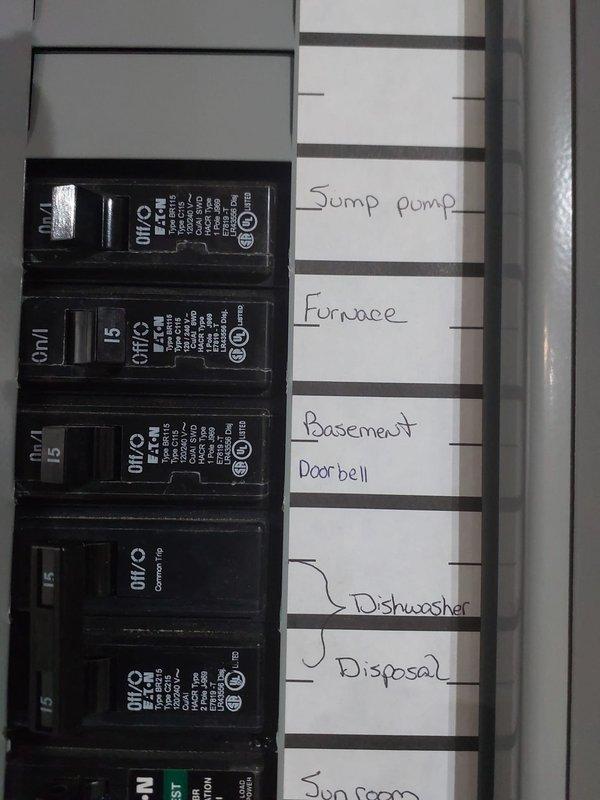 On/I
Off/O
EATON
Type BR115
Type C115
120/240 V~
Cu/Al SWD
HACR Type
1 Pole J969
E7819 -T
LR43556 Disj.
LISTED
Sump pump
On/I
15
Off/O
EATON
Type BR115
Type C115
120/240 V~
Cu/Al SWD
HACR Type
1 Pole J969
E7819 -T
LR43556 Disj.
LISTED
Furnace
On/I
15
Off/O
EATON
Type BR115
Type C115
120/240 V~
Cu/Al SWD
HACR Type
1 Pole J969
E7819 -T
LR43556 Disj.
LISTED
Basement
Doorbell
15
Off/O
Common Trip
Dishwasher
15
Off/O
EATON
Type BR215
Type C215
120/240 V~
Cu/Al
HACR Type
2 Pole J-969
E7819 -T
LR43556 Disj.
Disposal
Sunroom